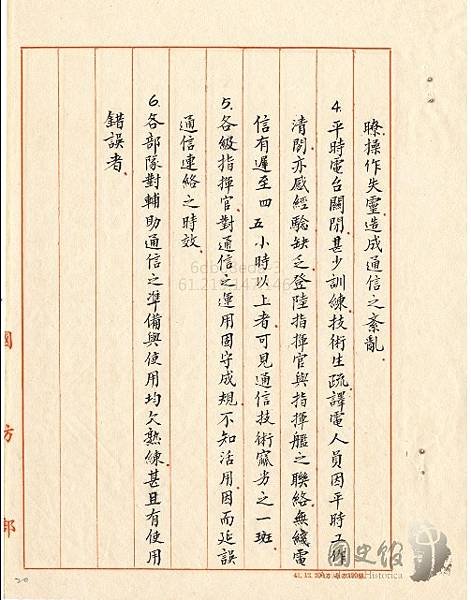 瞭操作失靈造成通信之紊亂
4.平時電台關閉甚少訓練技術生疏譯電人員因平時工作
清閒亦感經驗缺乏登陸指揮官與指揮艦之聯絡無綫電
信有遲至四五小時以上者可見通信技術窳劣之一斑
5.各級指揮官對通信之運用固守成規不知活用因而延誤
通信連絡之時效
6.各部隊對輔助通信之準備與使用均欠熟練甚且有使用
錯誤者
國防部
國史館
Academia Historica